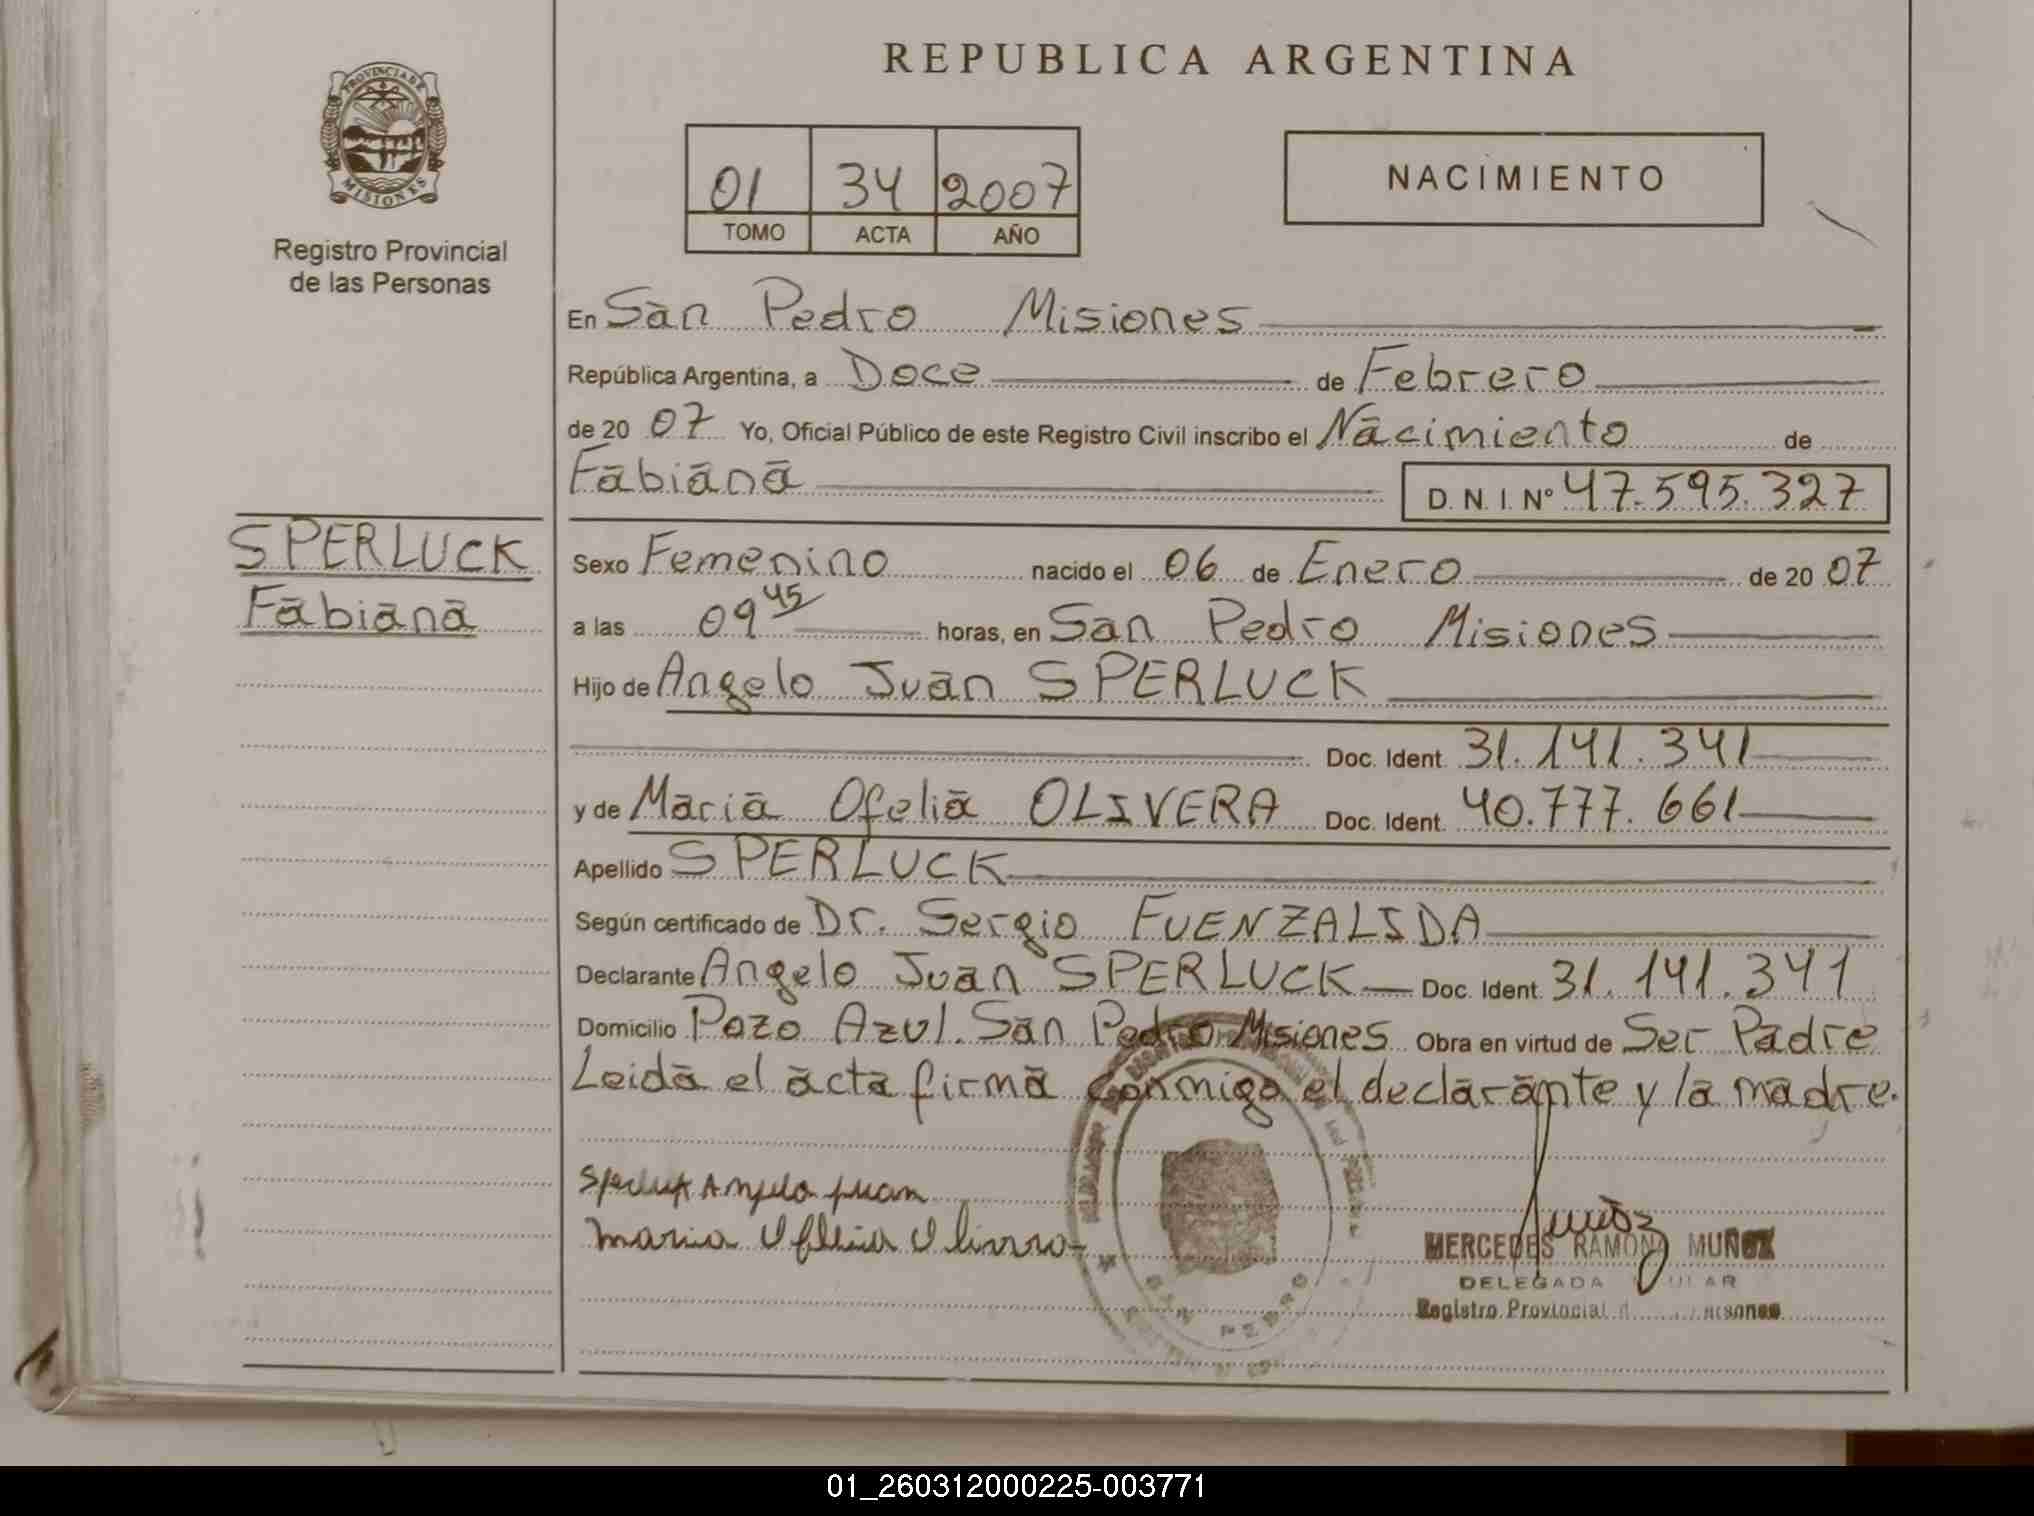 REPUBLICA ARGENTINA
PROVINCIA DE
MISIONES
Registro Provincial
de las Personas
01 34 2007
TOMO ACTA AÑO
NACIMIENTO
En San Pedro Misiones
República Argentina, a Doce de Febrero
de 20 07 Yo, Oficial Público de este Registro Civil inscribo el Nacimiento de
Fabiana D. N. I. Nº 47.595.327
SPERLUCK
Fabiana
Sexo Femenino nacido el 06 de Enero de 20 07
a las 09 45 horas, en San Pedro Misiones
Hijo de Angelo Juan SPERLUCK
Doc. Ident. 31.141.341
y de Maria Ofelia OLIVERA Doc. Ident. 40.777.661
Apellido SPERLUCK
Según certificado de Dr. Sergio FUENZALIDA
Declarante Angelo Juan SPERLUCK Doc. Ident. 31.141.341
Domicilio Pozo Azul. San Pedro Misiones Obra en virtud de Ser Padre
Leida el acta firma conmigo el declarante y la madre.
Angelo Juan
Maria Ofelia Olivera
SAN PEDRO
Muñoz
MERCEDES RAMONA MUÑOZ
DELEGADA
Registro Provincial
01_260312000225-003771